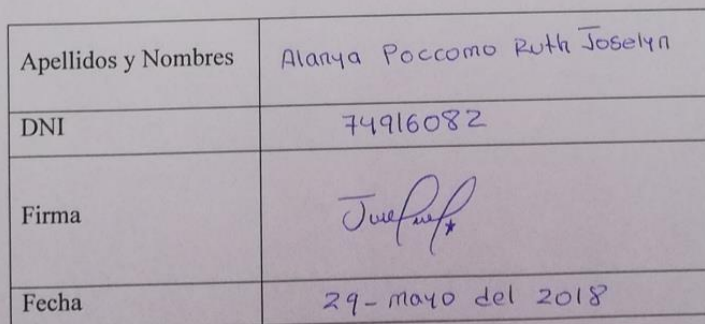 Apellidos y Nombres Alanya Poccomo Ruth Joselyn
DNI 74916082
Firma
Fecha 29- mayo del 2018